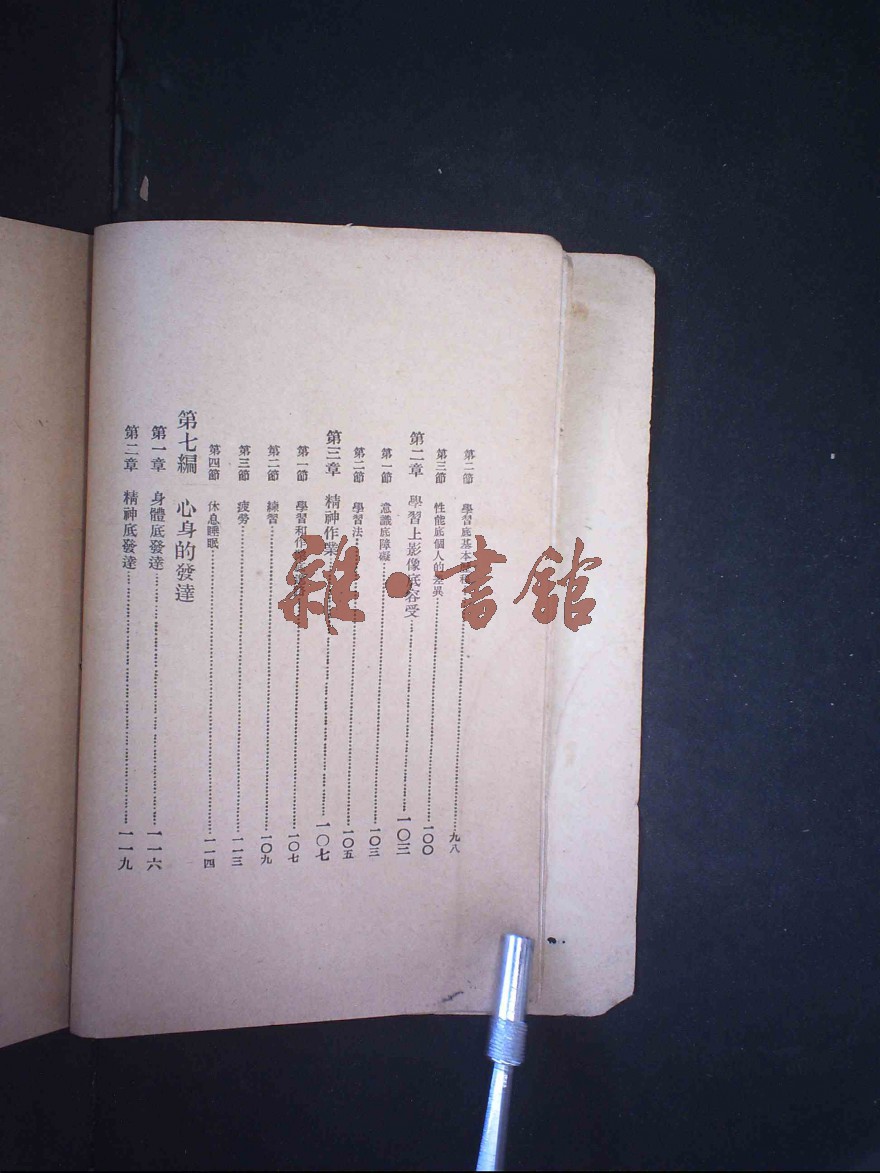 第二節 學習底基本 九八
第三節 性能底個人的差異 一〇〇
第二章 學習上影像底容受 一〇三
第一節 意識底障礙 一〇三
第二節 學習法 一〇五
第三章 精神作業 一〇七
第一節 學習和作 一〇七
第二節 練習 一〇九
第三節 疲勞 一一三
第四節 休息睡眠 一一四
第七編 心身的發達
第一章 身體底發達 一一六
第二章 精神底發達 一一九
雜·書館